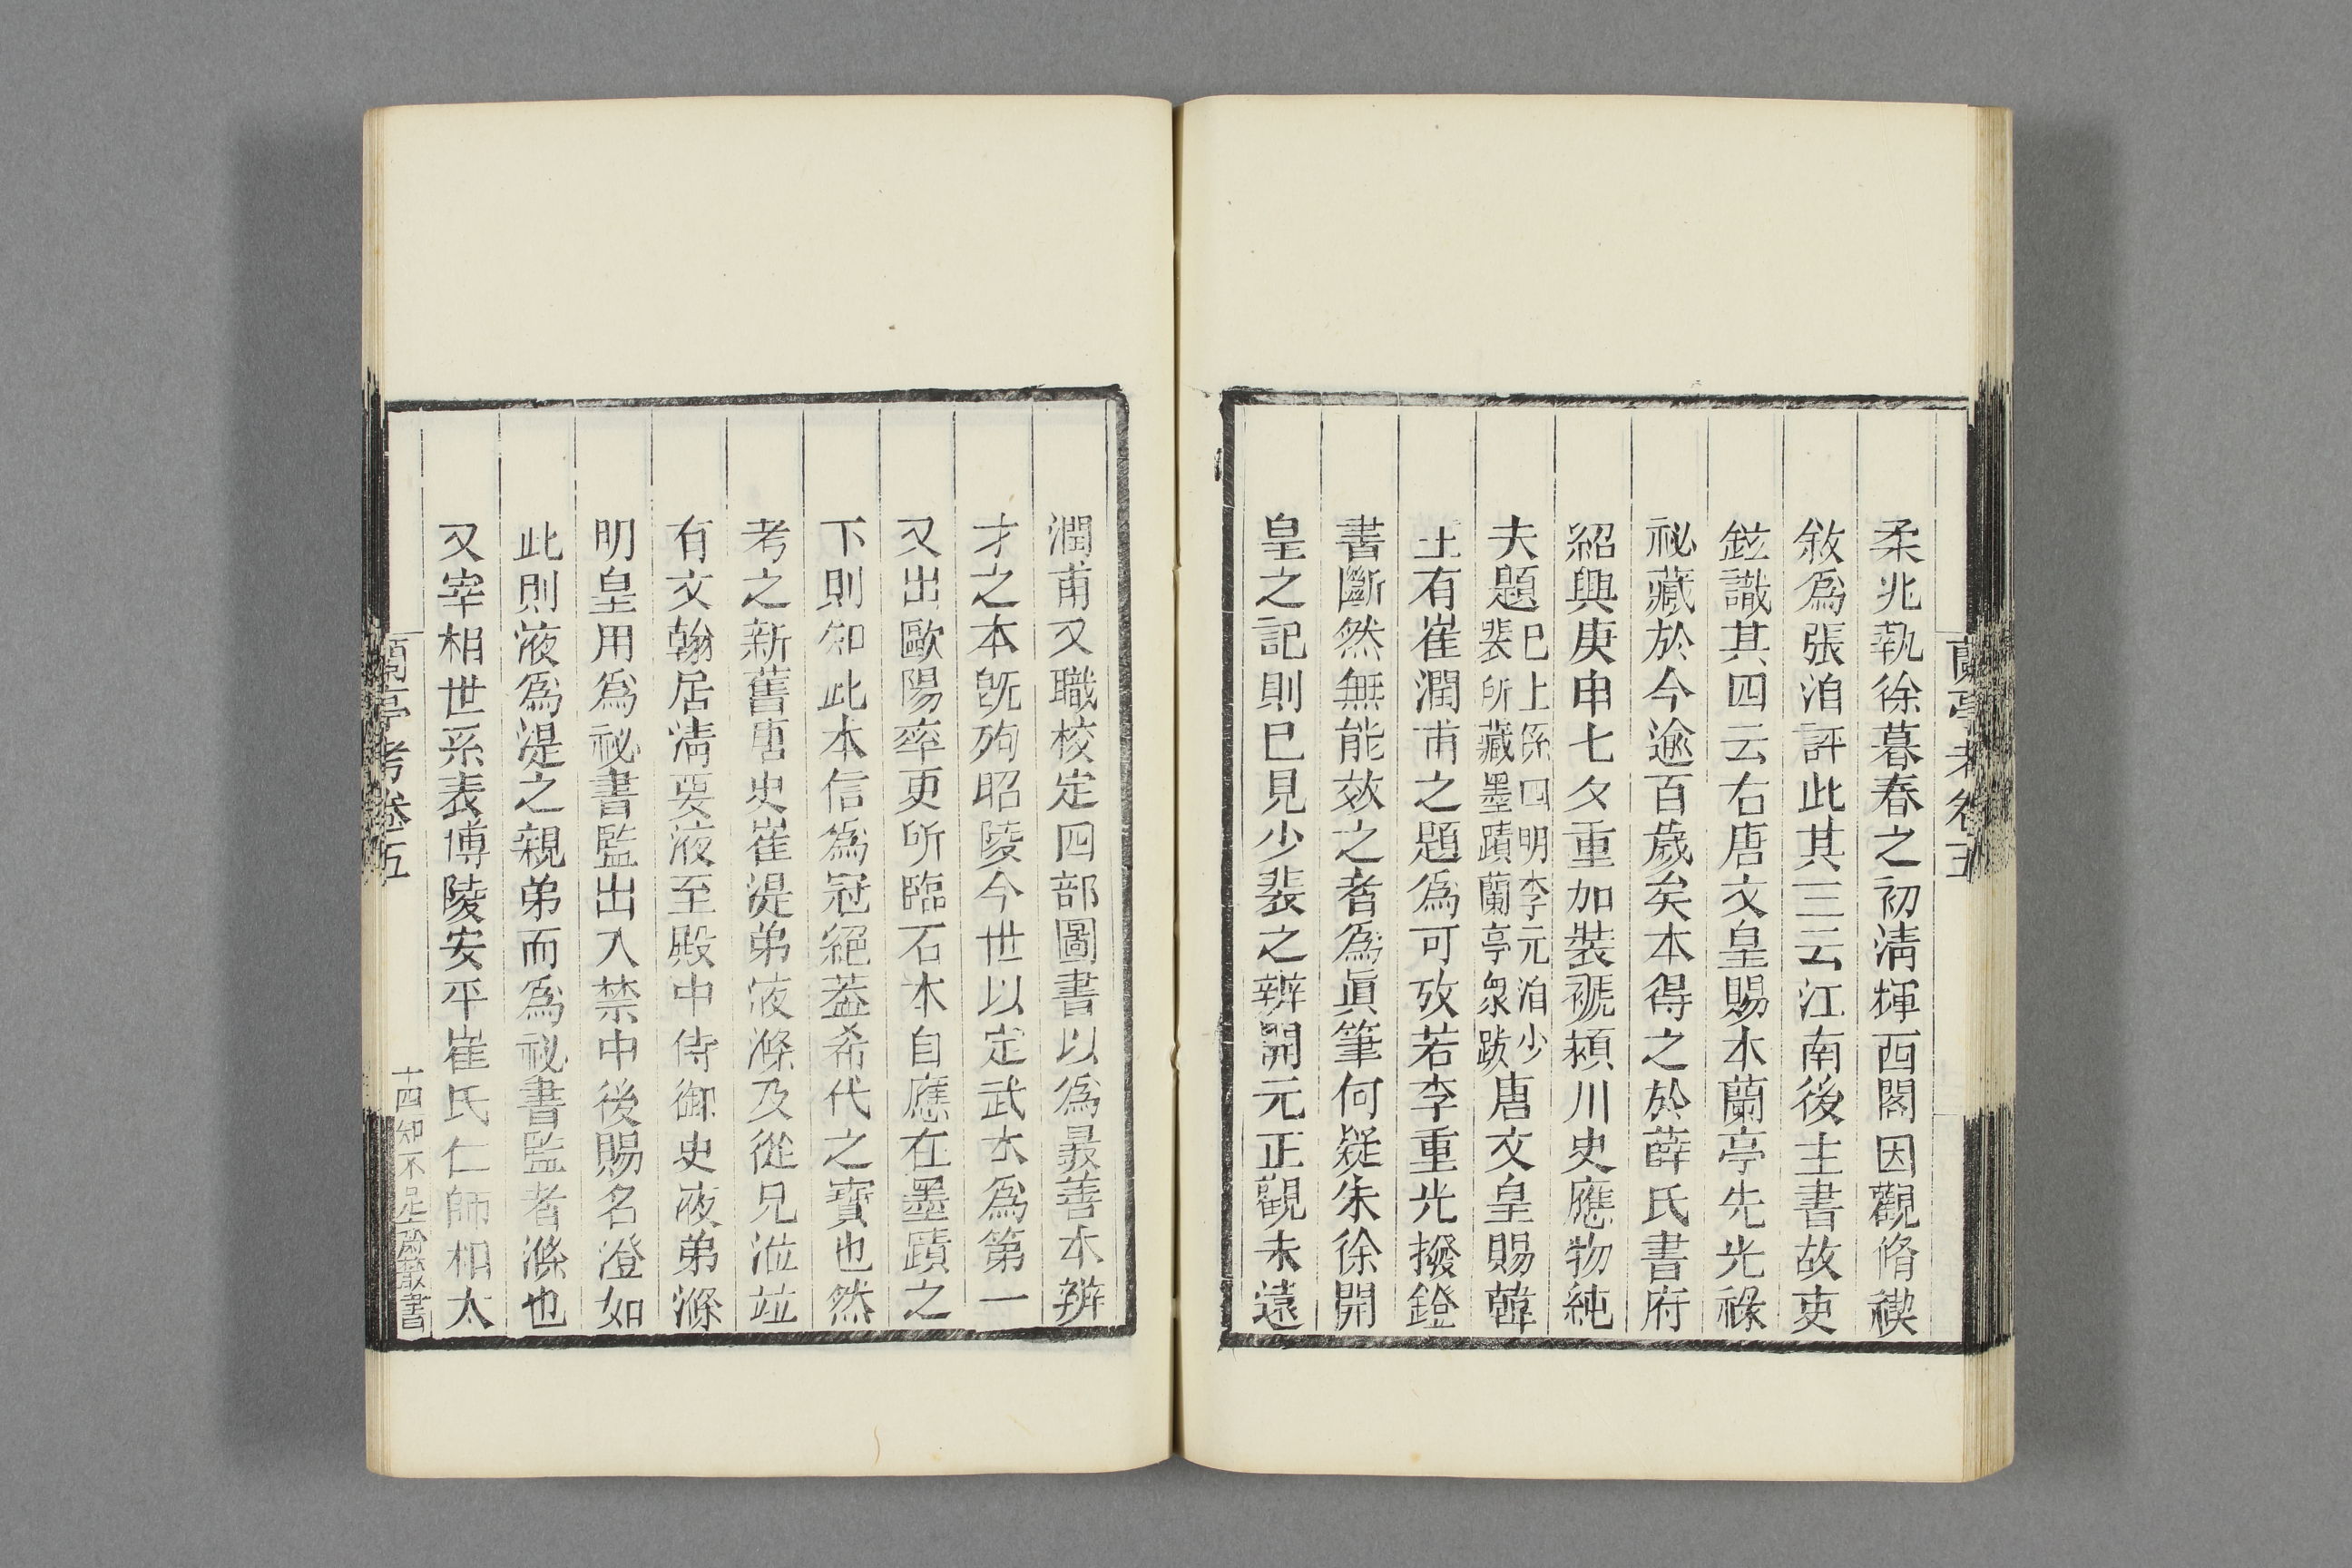 蘭亭考卷五
柔兆執徐暮春之初清輝西閣因觀脩禊
敘爲張洎評此其三云江南後主書故吏
鉉識其四云右唐文皇賜本蘭亭先光祿
祕藏於今逾百歲矣本得之於薛氏書府
紹興庚申七夕重加裝褫潁川史應物純
夫題巳上係四明李元洎少裴所藏墨蹟蘭亭衆跋唐文皇賜韓
王有崔潤甫之題爲可攷若李重光撥鐙
書斷然無能效之者爲眞筆何疑朱徐開
皇之記則巳見少裴之辨開元正觀未遠
潤甫又職校定四部圖書以爲最善本辨
才之本旣殉昭陵今世以定武本爲第一
又出歐陽率更所臨石本自應在墨蹟之
下則知此本信爲冠絕葢希代之寶也然
考之新舊唐史崔湜弟液滌及從兄涖竝
有文翰居清要液至殿中侍御史液弟滌
明皇用爲祕書監出入禁中後賜名澄如
此則液爲湜之親弟而爲祕書監者滌也
又宰相世系表博陵安平崔氏仁師相太
蘭亭考卷五
十四知不足齋叢書